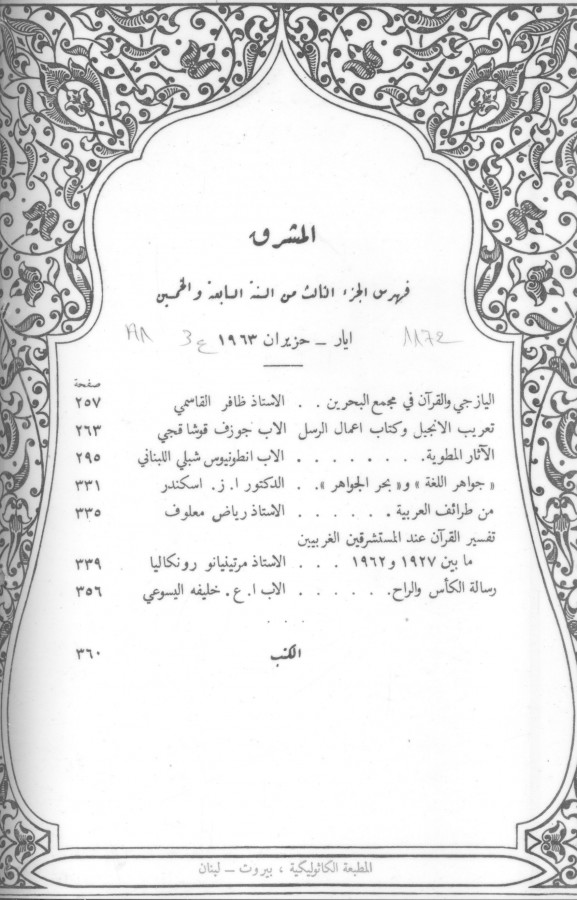 المشرق
فهرس الجزء الثالث من السنة السابعة والخمسين
ايار – حزيران ١٩٦٣ ع 3
1172
صفحة
اليازجي والقرآن في مجمع البحرين . . الاستاذ ظافر القاسمي ٢٥٧
تعريب الانجيل وكتاب اعمال الرسل الاب جوزف قوشاقجي ٢٦٣
الآثار المطوية . . . . . . . الاب انطونيوس شبلي اللبناني ٢٩٥
« جواهر اللغة » و« بحر الجواهر » . . الدكتور ا. ز. اسكندر ٣٣١
من طرائف العربية . . . . . . الاستاذ رياض معلوف ٣٣٥
تفسير القرآن عند المستشرقين الغربيين
ما بين ١٩٢٧ و ١٩٦٢ . . . الاستاذ مرتينيانو رونكاليا ٣٣٩
رسالة الكأس والراح . . . . . . الاب ا. ع. خليفه اليسوعي ٣٥٦
. . .
الكتب ٣٦٠
المطبعة الكاثوليكية ، بيروت – لبنان